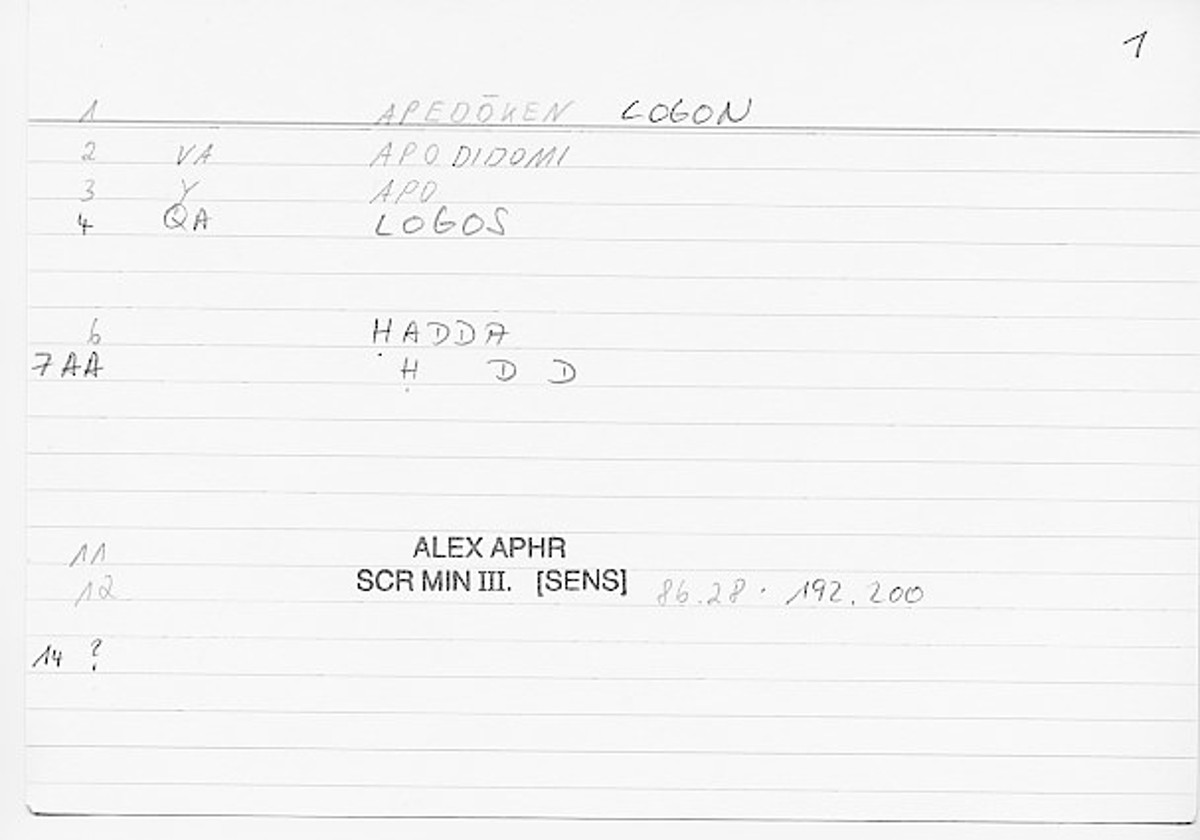 1
1 APEDŌKEN LOGON
2 VA APODIDOMI
3 Y APO
4 QA LOGOS
6 ḤADDA
7 AA Ḥ D D
11 ALEX APHR
12 SCR MIN III. [SENS] 86.28 · 192.200
14 ?